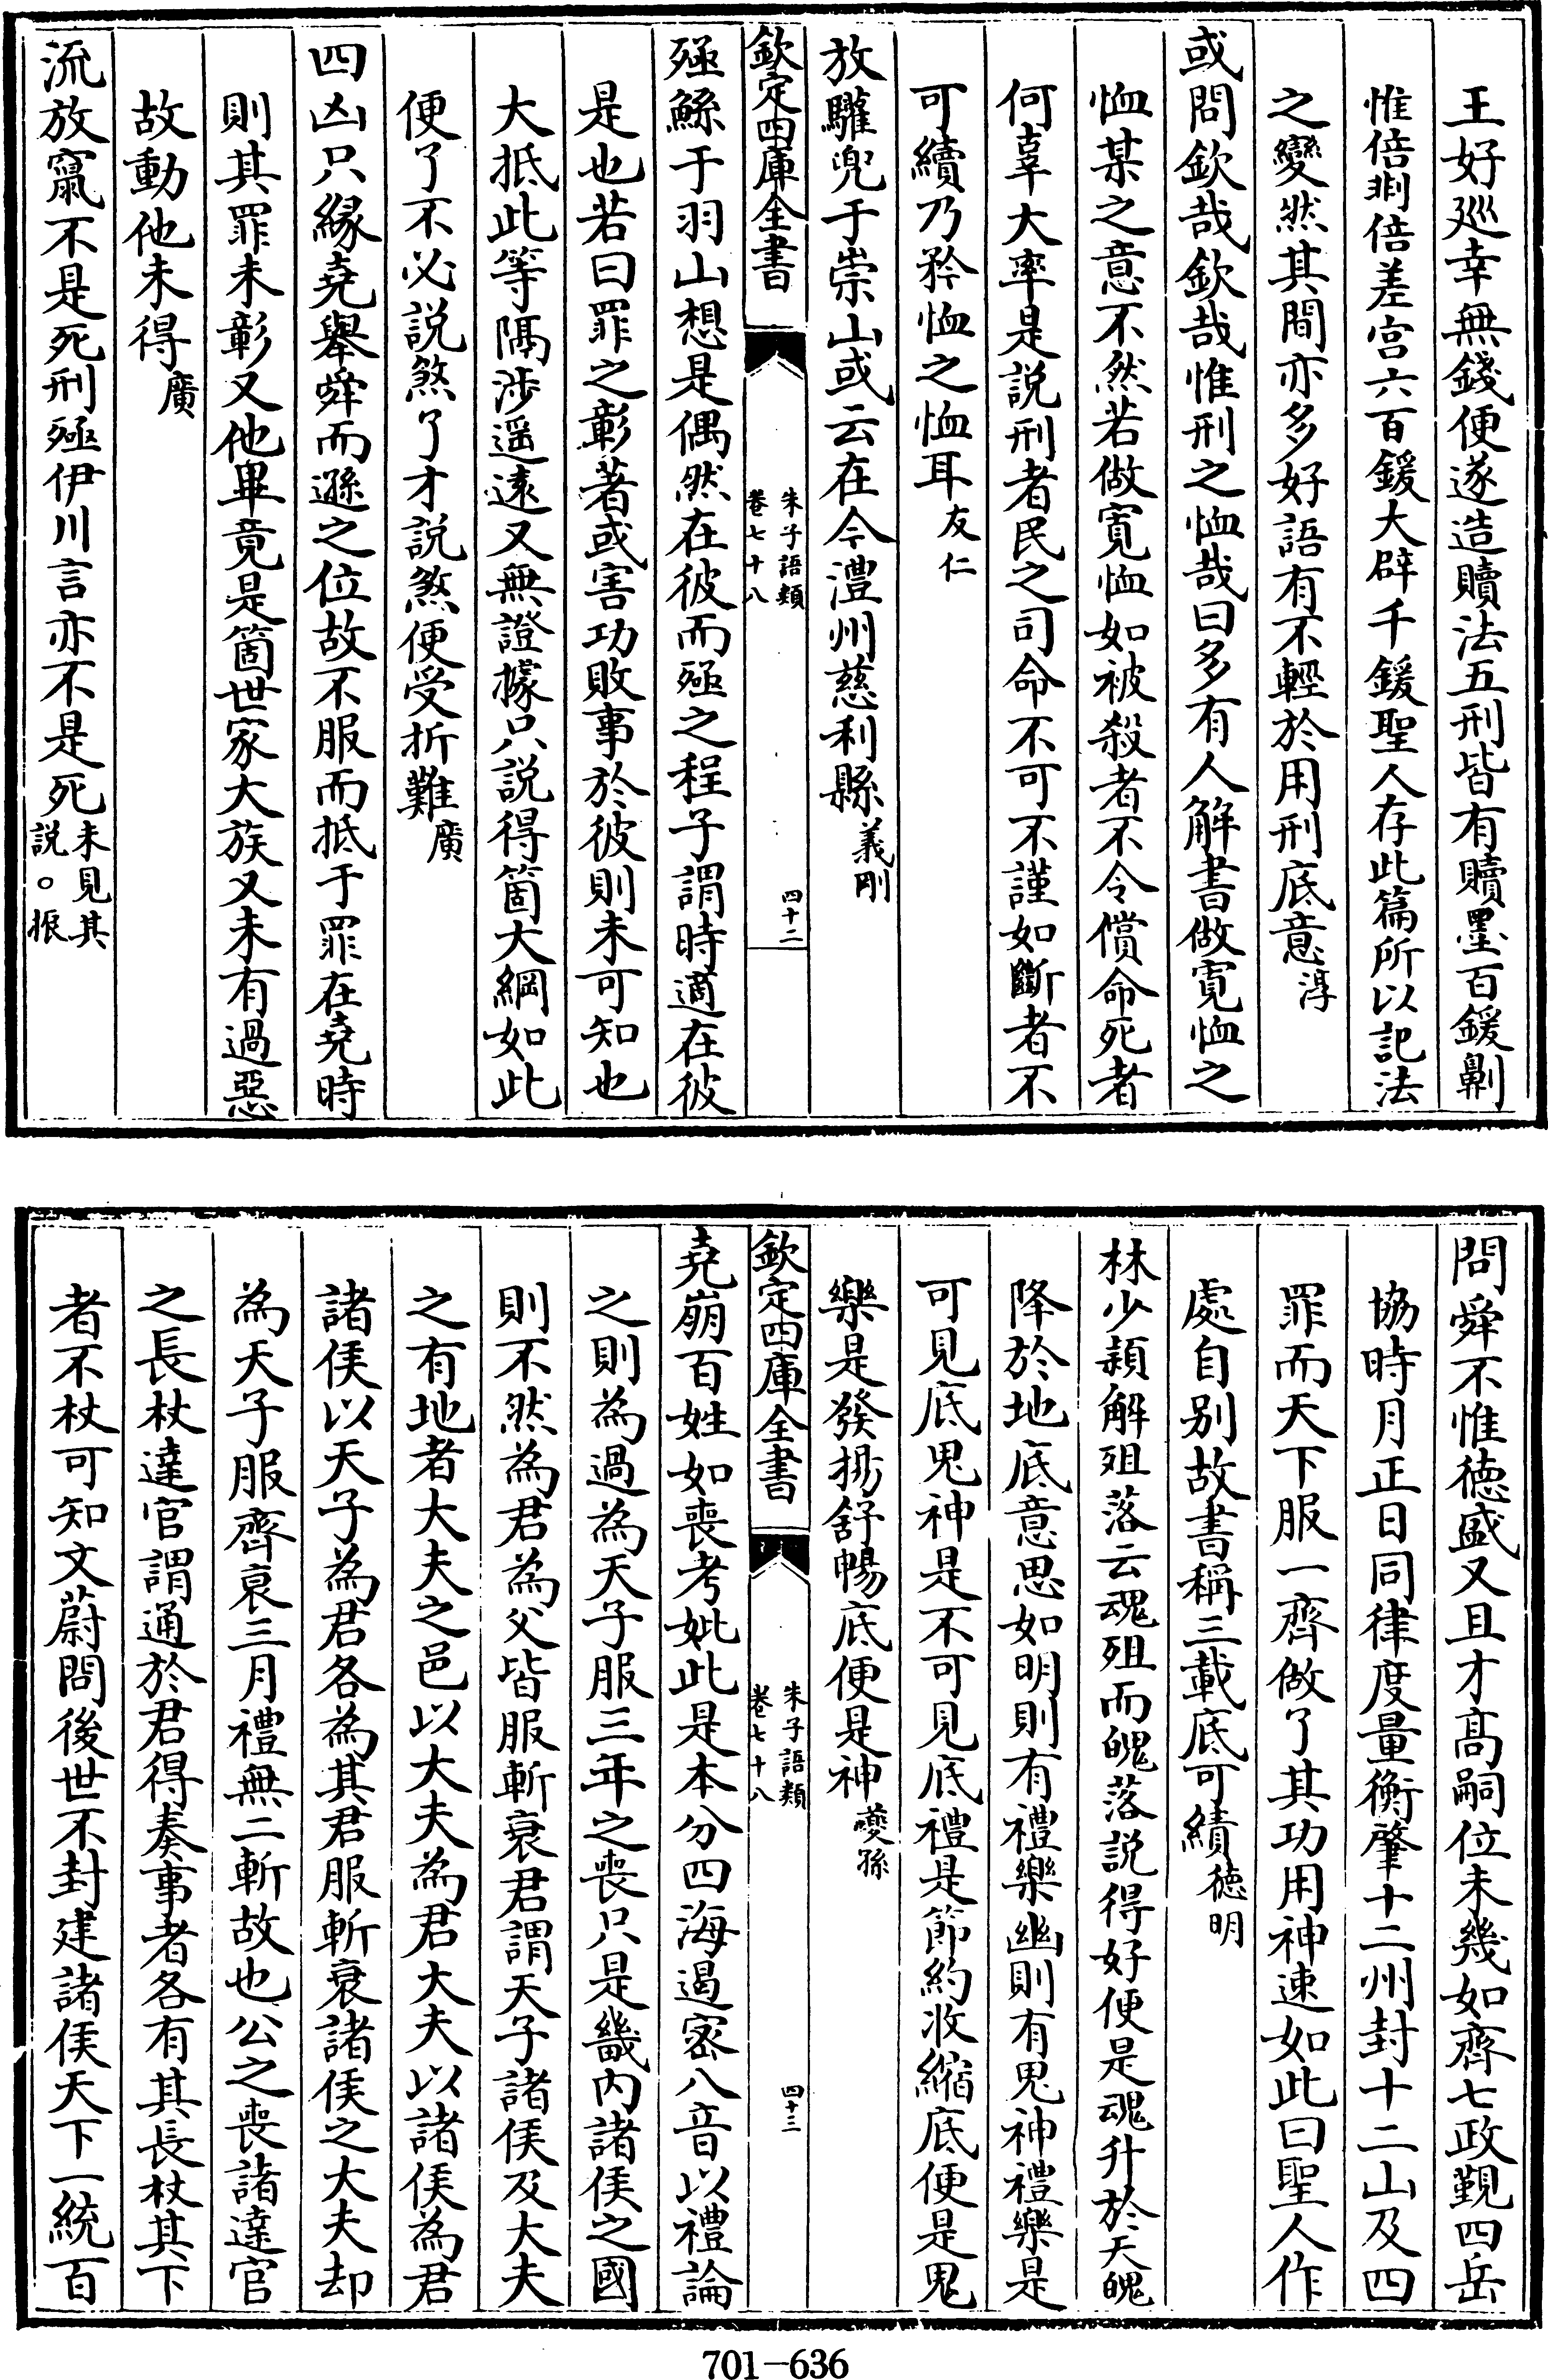 王好廵幸無錢便遂造贖法五刑皆有贖墨百鍰劓
惟倍剕倍差宫六百鍰大辟千鍰聖人存此篇所以記法
之變然其間亦多好語有不輕於用刑底意淳
或問欽哉欽哉惟刑之恤哉曰多有人解書做寛恤之
恤某之意不然若做寛恤如被殺者不令償命死者
何辜大率是説刑者民之司命不可不謹如斷者不
可續乃矜恤之恤耳友仁
放驩兜于崇山或云在今澧州慈利縣義剛
欽定四庫全書
朱子語類
卷七十八
四十二
殛鯀于羽山想是偶然在彼而殛之程子謂時適在彼
是也若曰罪之彰著或害功敗事於彼則未可知也
大抵此等隔涉遥遠又無證據只説得箇大綱如此
便了不必説煞了才説煞便受折難廣
四凶只縁堯舉舜而遜之位故不服而抵于罪在堯時
則其罪未彰又他畢竟是箇世家大族又未有過惡
故動他未得廣
流放竄不是死刑殛伊川言亦不是死未見其
説○振
問舜不惟徳盛又且才髙嗣位未幾如齊七政覲四岳
協時月正日同律度量衡肇十二州封十二山及四
罪而天下服一齊做了其功用神速如此曰聖人作
處自别故書稱三載底可績徳明
林少穎解殂落云魂殂而魄落説得好便是魂升於天魄
降於地底意思如明則有禮樂幽則有鬼神禮樂是
可見底鬼神是不可見底禮是節約收縮底便是鬼
樂是發揚舒暢底便是神夔孫
欽定四庫全書
朱子語類
卷七十八
四十三
堯崩百姓如喪考妣此是本分四海遏密八音以禮論
之則為過為天子服三年之喪只是畿内諸侯之國
則不然為君為父皆服斬衰君謂天子諸侯及大夫
之有地者大夫之邑以大夫為君大夫以諸侯為君
諸侯以天子為君各為其君服斬衰諸侯之大夫却
為天子服齊衰三月禮無二斬故也公之喪諸達官
之長杖達官謂通於君得奏事者各有其長杖其下
者不杖可知文蔚問後世不封建諸侯天下一統百
701-636